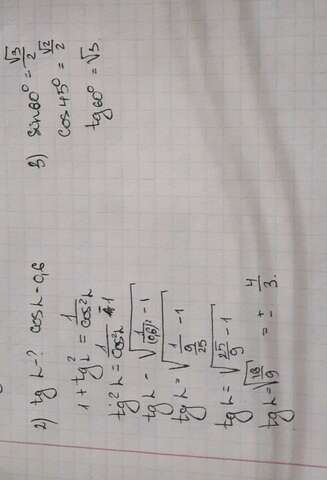 2) tg L - ? cos L = 0,6
1 + tg² L = 1/cos² L
tg² L = 1/cos² L - 1
tg L = √(1/(0,6)² - 1)
tg L = √(1/(9/25) - 1)
tg L = √(25/9 - 1)
tg L = √(16/9) = ± 4/3.
3) sin 60° = √3/2
cos 45° = √2/2
tg 60° = √3